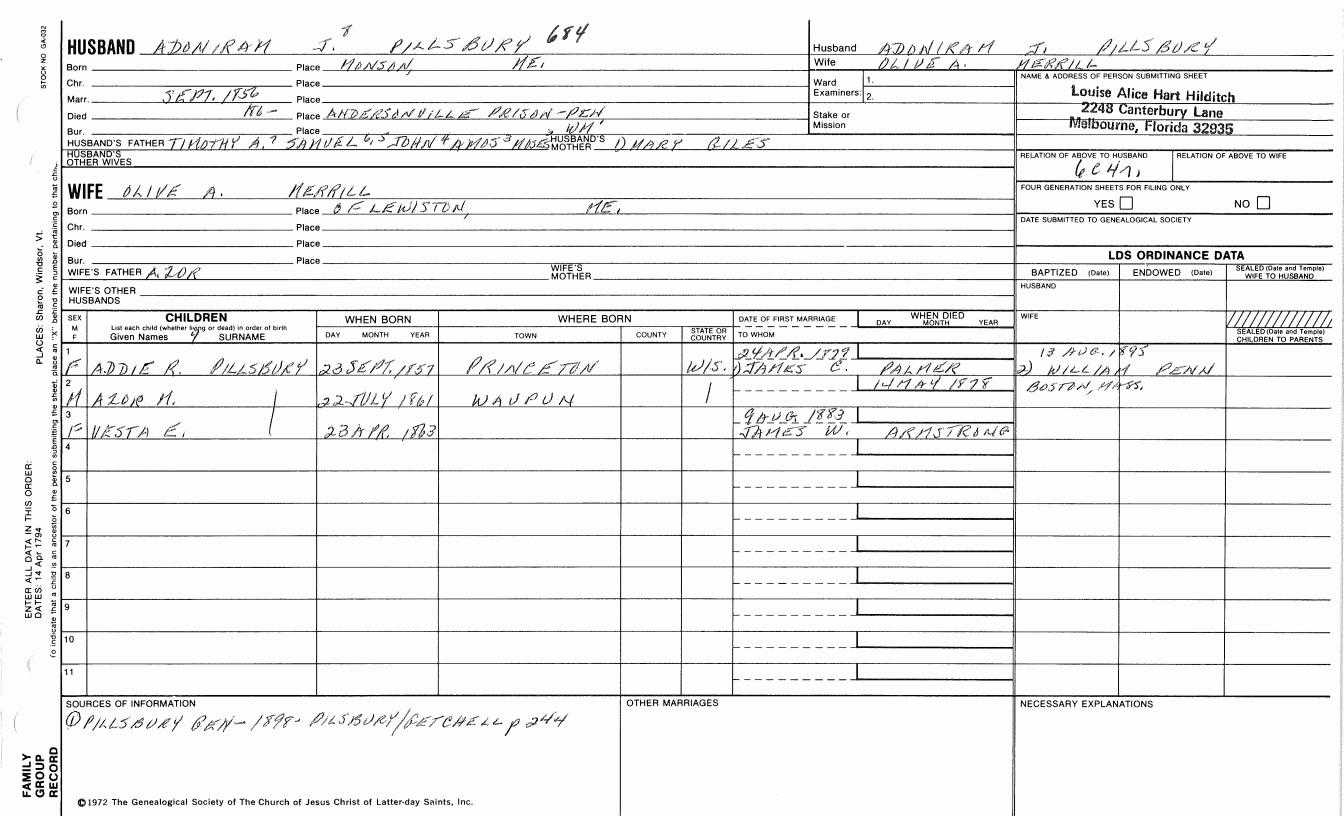 STOCK NO GA-032
HUSBAND ADONIRAM J.8 PILLSBURY 684
Born Place MONSON, ME.
Chr. Place
Marr. SEPT. 1856 Place
Died 186- Place ANDERSONVILLE PRISON-PEN
Bur. Place
HUSBAND'S FATHER TIMOTHY A.7 SAMUEL 6,5 JOHN 4 AMOS 3 MOSES 2 WM' HUSBAND'S MOTHER 1) MARY GILES
HUSBAND'S OTHER WIVES
WIFE OLIVE A. MERRILL
Born Place OF LEWISTON, ME.
Chr. Place
Died Place
Bur. Place
WIFE'S FATHER AZOR WIFE'S MOTHER
WIFE'S OTHER HUSBANDS
Husband ADONIRAM J. PILLSBURY
Wife OLIVE A. MERRILL
Ward Examiners: 1. 2.
Stake or Mission
NAME & ADDRESS OF PERSON SUBMITTING SHEET
Louise Alice Hart Hilditch
2248 Canterbury Lane
Melbourne, Florida 32935
RELATION OF ABOVE TO HUSBAND RELATION OF ABOVE TO WIFE
6C4r,
FOUR GENERATION SHEETS FOR FILING ONLY
YES NO
DATE SUBMITTED TO GENEALOGICAL SOCIETY
LDS ORDINANCE DATA
BAPTIZED (Date) ENDOWED (Date) SEALED (Date and Temple) WIFE TO HUSBAND
HUSBAND
WIFE
SEALED (Date and Temple) CHILDREN TO PARENTS
SEX M F
CHILDREN
List each child (whether living or dead) in order of birth
Given Names SURNAME
WHEN BORN
DAY MONTH YEAR
WHERE BORN
TOWN COUNTY STATE OR COUNTRY
DATE OF FIRST MARRIAGE
TO WHOM
WHEN DIED
DAY MONTH YEAR
1 24 APR. 1879 13 AUG. 1895
F ADDIE R. PILLSBURY 23 SEPT. 1857 PRINCETON WIS. 1) JAMES C. PALMER 2) WILLIAM PENN
2 14 MAY 1878 BOSTON, MASS.
M AZOR M. 22 JULY 1861 WAUPUN
3 9 AUG. 1883
F VESTA E. 23 APR. 1863 JAMES W. ARMSTRONG
4
5
6
7
8
9
10
11
SOURCES OF INFORMATION
① PILLSBURY GEN- 1898- PILSBURY/GETCHELL p 244
OTHER MARRIAGES
NECESSARY EXPLANATIONS
©1972 The Genealogical Society of The Church of Jesus Christ of Latter-day Saints, Inc.
FAMILY
GROUP
RECORD
ENTER ALL DATA IN THIS ORDER:
DATES: 14 Apr 1794
PLACES: Sharon, Windsor, Vt.
To indicate that a child is an ancestor of the person submitting the sheet, place an "X" behind the number pertaining to that